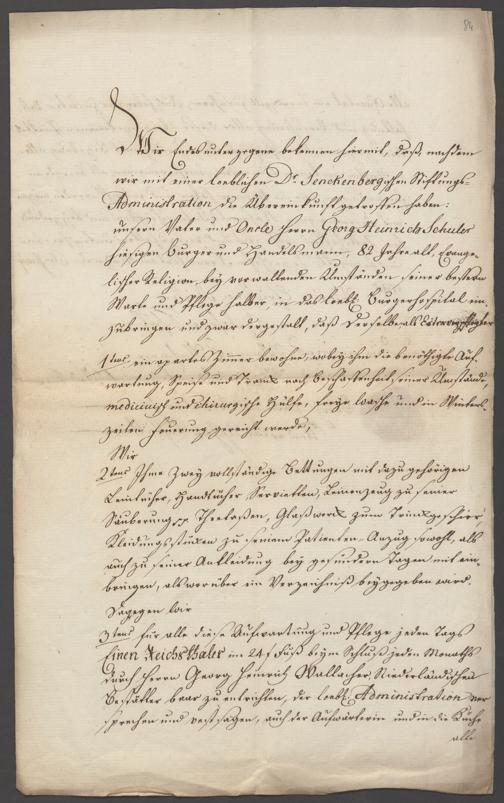 84
Wir Endes unterzogene bekennen hiermit, daß, nachdem
wir mit einer loeblichen Dr. Senckenbergischen Stiftungs-
Administration die Übereinkunft getroffen haben:
unsern Vater und Oncle Herrn Georg Heinrich Schuler
hiesigen Burger und Handelsmann, 82 Jahre alt, Evange-
lischer Religion, bey vorwaltenden Umständen seiner bessern
Warte und Pflege halber, in das loebl. Burgerhospital ein-
zubringen und zwar dergestalt, daß Derselbe als
1tens ein apartes Zimmer bewohne, wobey ihm die benöthigte Auf-
wartung, Speise und Trank nach Beschaffenheit seiner Umstände,
medicinisch und chirurgische Hülfe, freye Wasche und in Winters-
zeiten Feuerung gereicht werde,
Wir
2tens Ihme zwey vollständige Bettungen mit dazu gehörigen
Leintücher, Handtücher Servietten, Leinenzeug zu seiner
Säuberung Theetaßen, Glaßwerk zum Trinkgeschirr,
Kleidungsstücken zu seinem Patienten-Anzug sowohl, als
auch zu seiner Ankleidung bey gesundern Tagen mit ein-
bringen, als worüber ein Verzeichniß beygegeben ward.
Dagegen wir
3tens für alle diese Aufwartung und Pflege jeden Tags
Einen Reichsthaler im 24 f Fuß beym Schluß jeden Monaths
durch Herrn Georg Heinrich Wallacher, Niederländischen
Bestätter baar zu entrichten, der loebl. Administration ver-
sprechen und zusagen, auch der Aufwärterin und in die Küche
alle